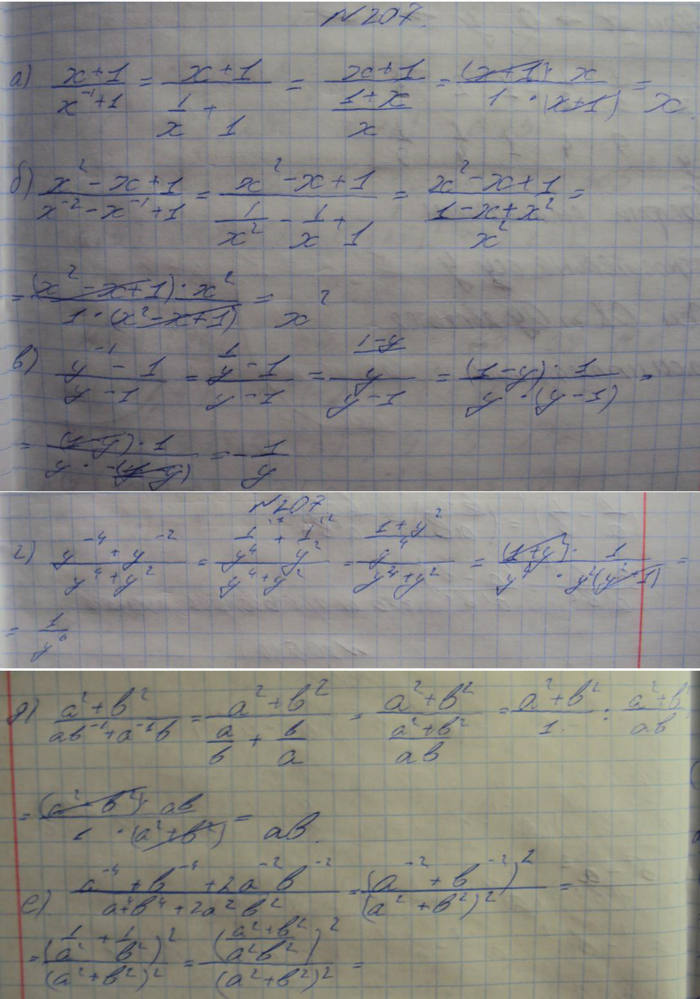 №207.
а) (x+1)/(x⁻¹+1) = (x+1)/(1/x + 1) = (x+1)/((1+x)/x) = ((x+1)·x)/(1·(x+1)) = x.
б) (x²-x+1)/(x⁻²-x⁻¹+1) = (x²-x+1)/(1/x² - 1/x + 1) = (x²-x+1)/((1-x+x²)/x²) =
= ((x²-x+1)·x²)/(1·(x²-x+1)) = x²
в) (y⁻¹-1)/(y-1) = (1/y - 1)/(y-1) = ((1-y)/y)/(y-1) = ((1-y)·1)/(y·(y-1)) =
= ((1-y)·1)/(y·-(1-y)) = -1/y
№207
г) (y⁻⁴+y⁻²)/(y⁴+y²) = (1/y⁴ + 1/y²)/(y⁴+y²) = ((1+y²)/y⁴)/(y⁴+y²) = ((1+y²)·1)/(y⁴·y²(y²+1)) =
= 1/y⁶
д) (a²+b²)/(ab⁻¹+a⁻¹b) = (a²+b²)/(a/b + b/a) = (a²+b²)/((a²+b²)/ab) = (a²+b²)/1 : (a²+b²)/ab
= ((a²+b²)·ab)/(1·(a²+b²)) = ab.
е) (a⁻⁴+b⁻⁴+2a⁻²b⁻²)/(a⁴+b⁴+2a²b²) = (a⁻²+b⁻²)²/(a²+b²)² =
= (1/a² + 1/b²)²/(a²+b²)² = ((a²+b²)/(a²b²))²/(a²+b²)² =